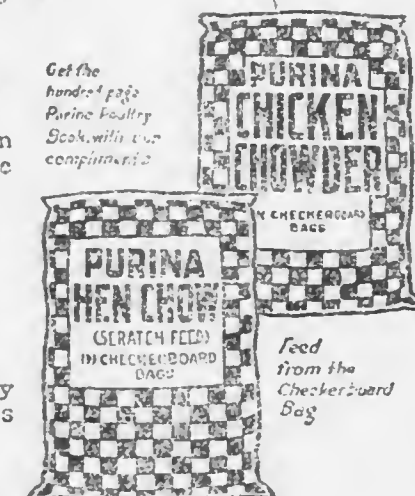 Get the
hundred page
Purina Poultry
Book, with our
compliments
PURINA
CHICKEN
CHOWDER
IN CHECKERBOARD
BAGS
PURINA
HEN CHOW
(SCRATCH FEED)
IN CHECKERBOARD
BAGS
Feed
from the
Checkerboard
Bag
n
c
y
s